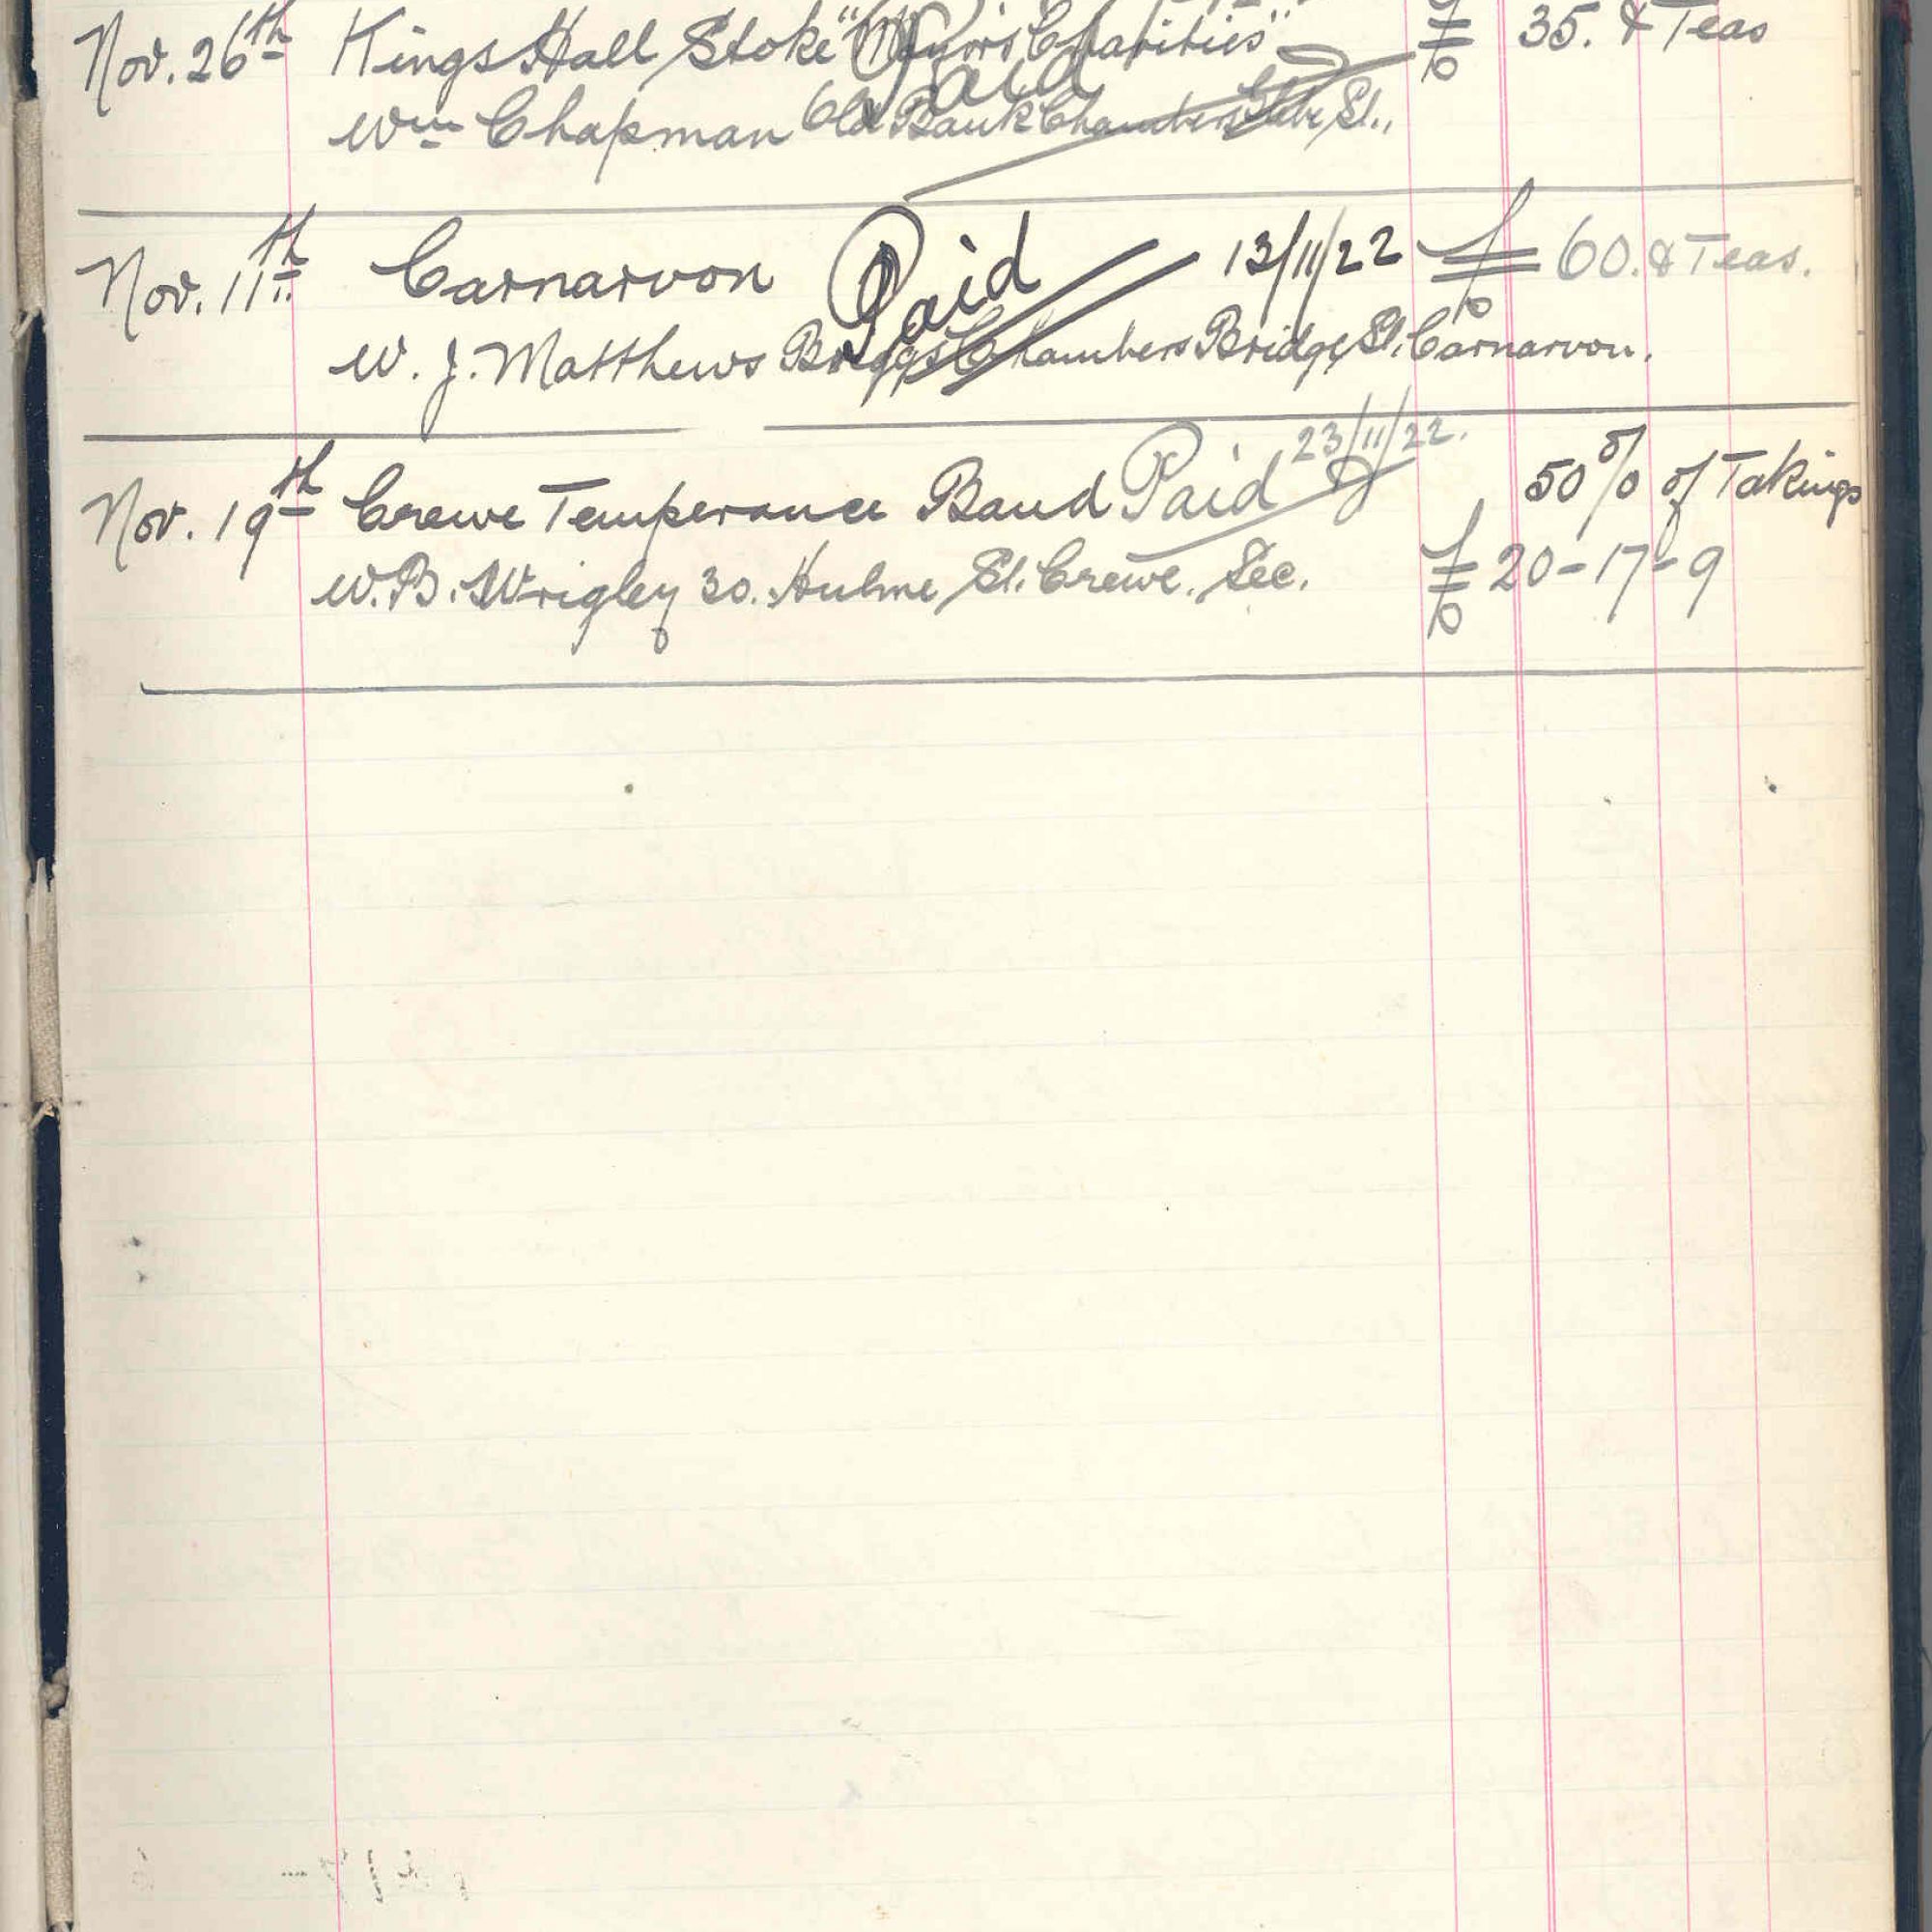 Nov. 26th Kings Hall Stoke "Mayor's Charities" £ 35. & Teas
Paid
Wm Chapman Old Bank Chambers Glebe St.,
Nov. 11th Carnarvon Paid 13/11/22 £ 60. & Teas.
W. J. Matthews Chambers Bridge St. Carnarvon.
Nov. 19th Crewe Temperance Band Paid 23/11/22. 50% of Takings
W. B. Wrigley 30. Hulme St. Crewe. Sec. £ 20-17-9